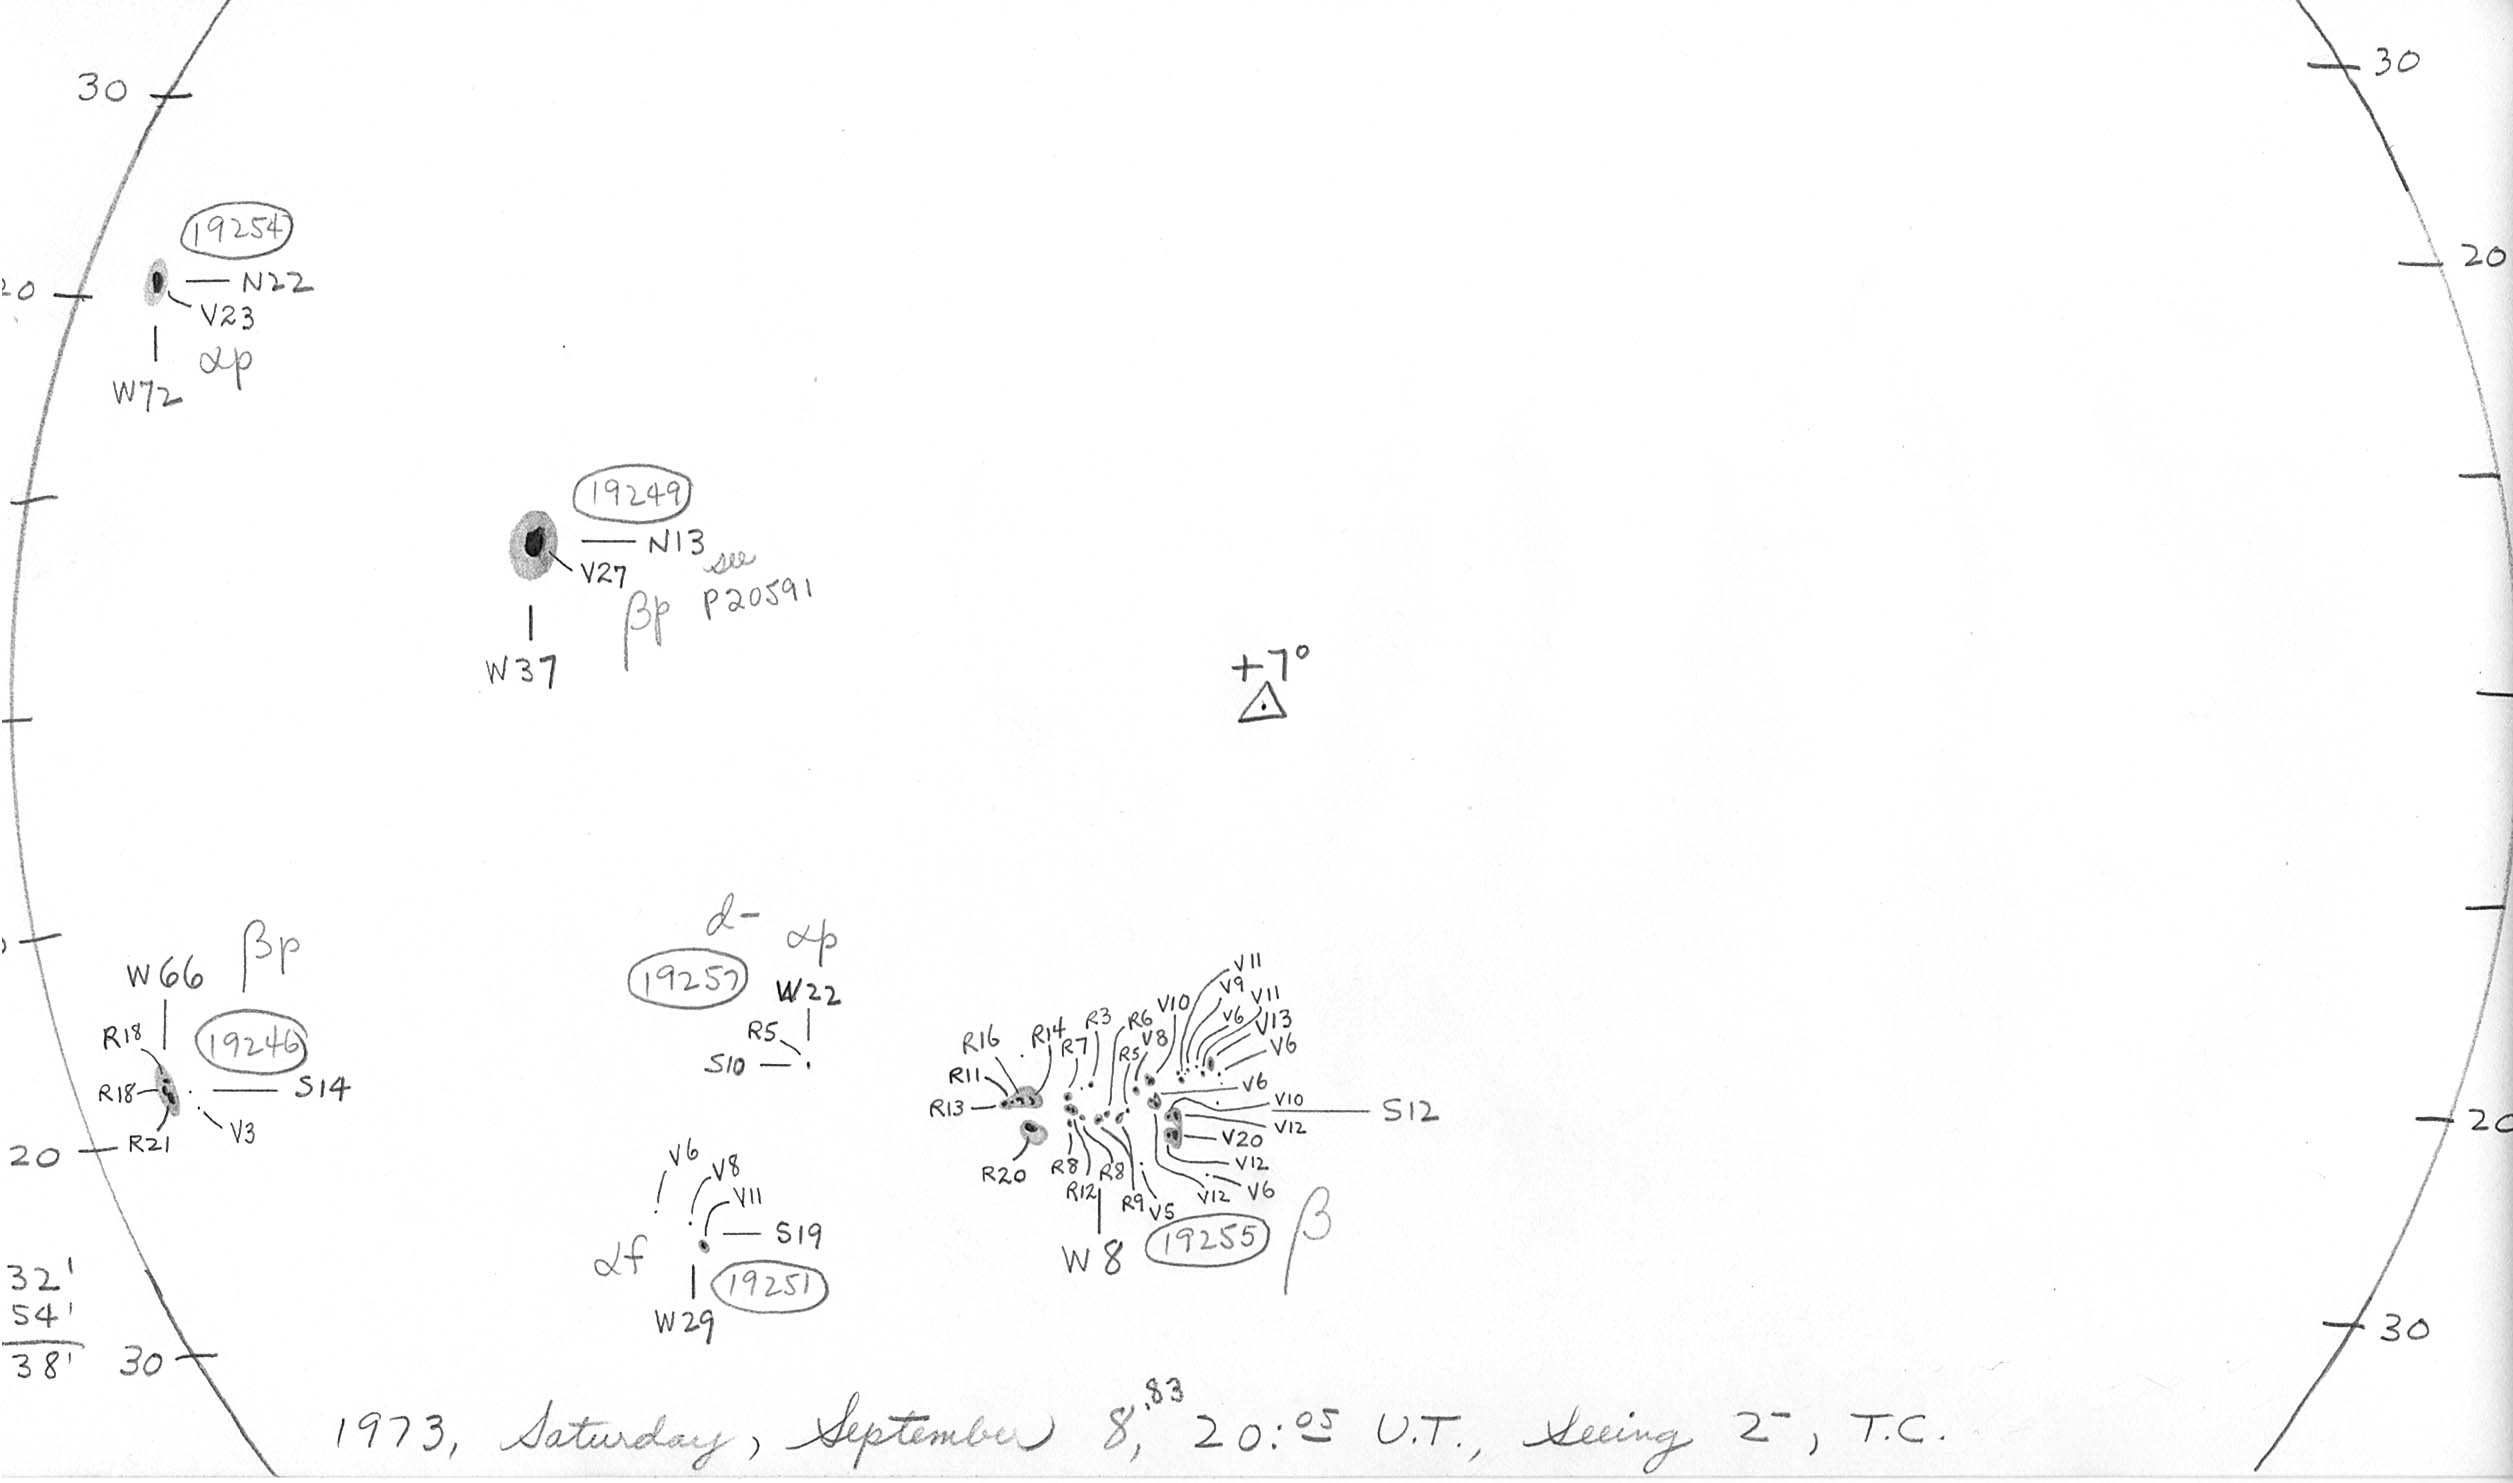 30
30
19254
N22
20
V23
αp
W72
20
19249
N13
see
V27
P20591
βp
W37
+7°
d-
αp
19257
W22
R5
S10
W66
βp
R18
19246
R18
S14
V3
R21
20
V11
V9
V11
V10
V6
V13
V6
R16
R14
R7
R3
R6
R5
V8
R11
R13
V6
V10
S12
V12
V20
V12
V6
V12
R20
R8
R12
R8
R9
V5
W8
19255
β
20
V6
V8
V11
S19
αf
19251
W29
32'
54'
38'
30
30
1973, Saturday, September 8,.83 20:05 U.T., Seeing 2-, T.C.